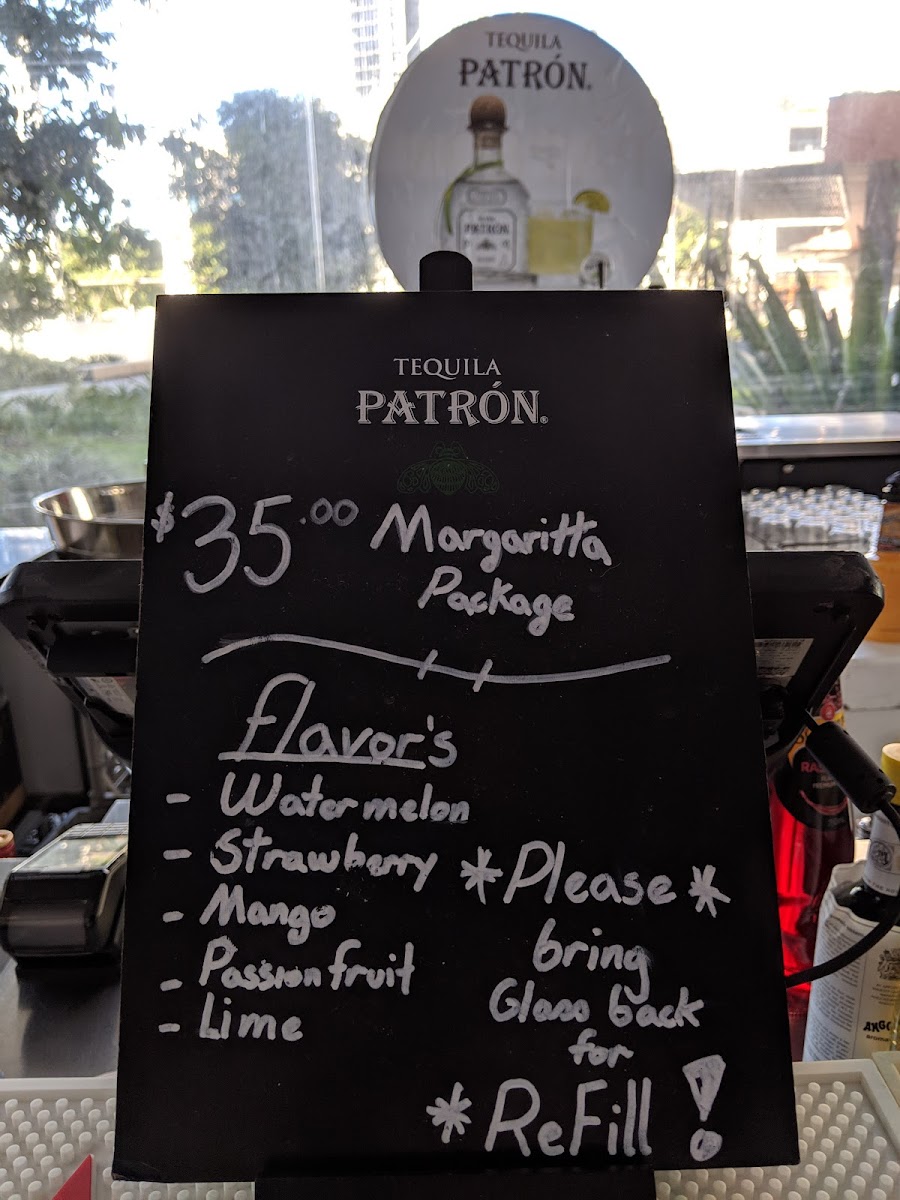 TEQUILA
PATRÓN.
PATRÓN
TEQUILA
PATRÓN.
$35.00 Margaritta
Package
flavor's
- Watermelon
- Strawberry
- Mango
- Passion fruit
- Lime
*Please*
bring
Glass back
for
*ReFill!